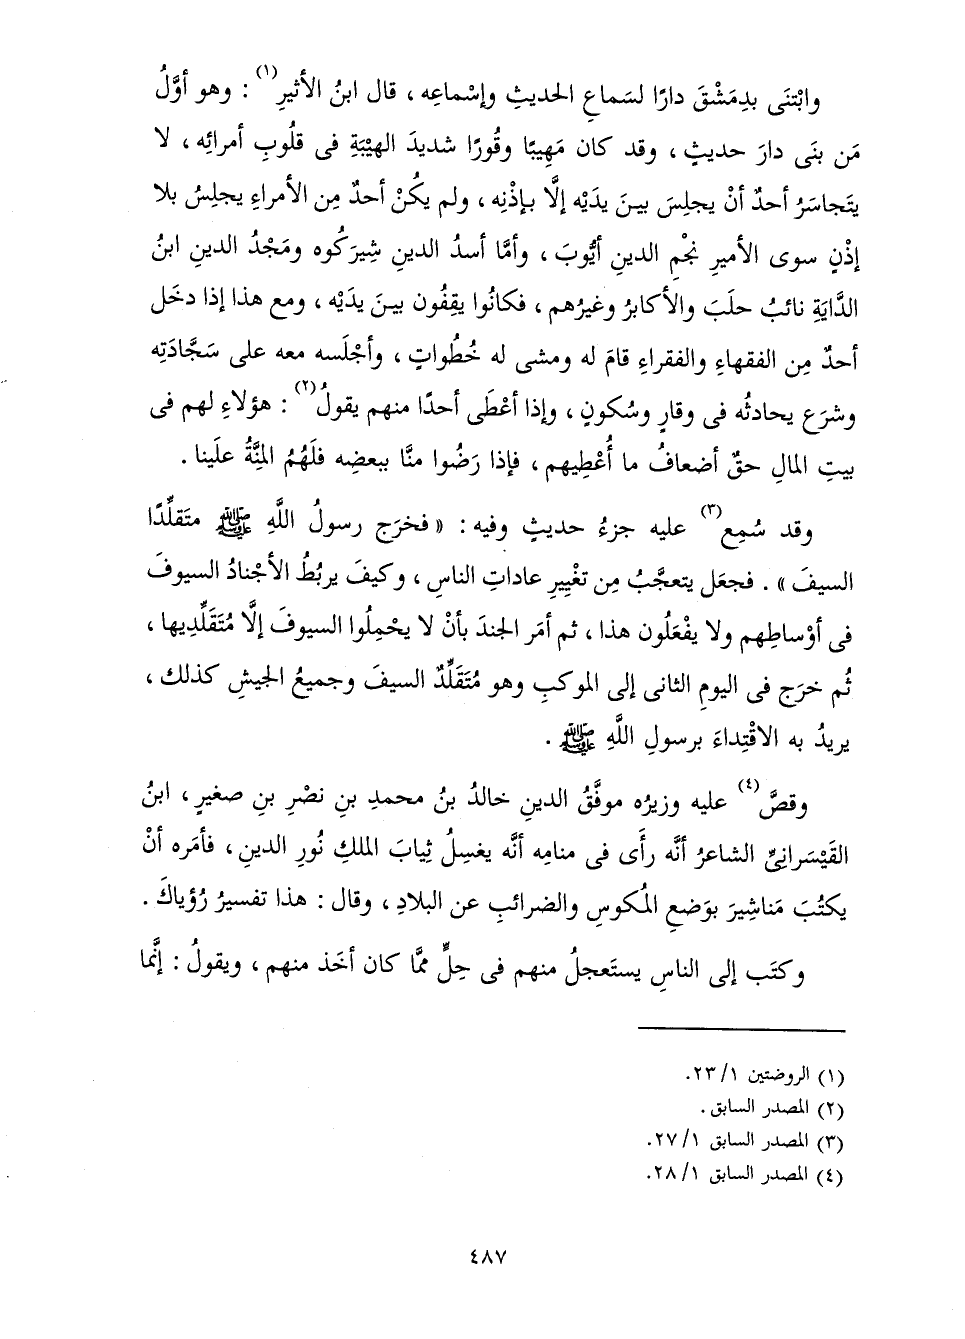 وابْتنَى بدِمَشْقَ دارًا لسَماعِ الحديثِ وإسْماعِه ، قال ابنُ الأثيرِ(١) : وهو أوَّلُ
مَن بنَى دارَ حديثٍ ، وقد كان مَهِيبًا وقُورًا شديدَ الهَيْبَةِ فى قلُوبِ أمرائِه ، لا
يتَجاسَرُ أحدٌ أنْ يجلِسَ بينَ يدَيْه إلَّا بإذْنِه ، ولم يكُنْ أحدٌ مِن الأمراءِ يجلِسُ بلا
إذْنٍ سوى الأميرِ نجْمِ الدينِ أيُّوبَ ، وأمَّا أسدُ الدينِ شِيرَكُوه ومَجْدُ الدينِ ابنُ
الدَّايَةِ نائبُ حلَبَ والأكابرُ وغيرُهم ، فكانُوا يقِفُون بينَ يدَيْه ، ومع هذا إذا دخَل
أحدٌ مِن الفقهاءِ والفقراءِ قامَ له ومشى له خُطُواتٍ ، وأجْلَسه معه على سَجَّادَتِه
وشرَع يحادثُه فى وقارٍ وسُكونٍ ، وإذا أعْطَى أحدًا منهم يقولُ(٢) : هؤلاءِ لهم فى
بيتِ المالِ حقٌ أضعافُ ما أُعْطِيهم ، فإذا رَضُوا منَّا ببعضِه فلَهُمُ المِنَّةُ علَينا .
وقد سُمِع(٣) عليه جزءُ حديثٍ وفيه : « فخرَج رسولُ اللَّهِ ﷺ متَقلِّدًا
السيفَ » . فجعَل يتعجَّبُ مِن تغْييرِ عاداتِ الناسِ ، وكيفَ يربُطُ الأجْنادُ السيوفَ
فى أوْساطِهم ولا يفْعَلُون هذا ، ثم أمَر الجندَ بأنْ لا يحْمِلُوا السيوفَ إلَّا مُتَقَلِّدِيها ،
ثُم خرَج فى اليومِ الثانى إلى الموكبِ وهو مُتَقَلِّدٌ السيفَ وجميعُ الجيشِ كذلك ،
يريدُ به الاقْتِداءَ برسولِ اللَّهِ ﷺ .
وقصَّ(٤) عليه وزيرُه موفَّقُ الدينِ خالدُ بنُ محمدِ بنِ نصْرِ بنِ صغيرٍ ، ابنُ
القَيْسَرانِىِّ الشاعرُ أنَّه رأَى فى منامِه أنَّه يغسِلُ ثِيابَ الملكِ نُورِ الدينِ ، فأمَره أنْ
يكتُبَ مَناشِيرَ بوَضعِ المُكوسِ والضرائبِ عن البلادِ ، وقال : هذا تفسيرُ رُؤياكَ .
وكتَب إلى الناسِ يستَعجلُ منهم فى حِلٍّ ممَّا كان أخَذ منهم ، ويقولُ : إنَّما
(١) الروضتين ١/ ٢٣.
(٢) المصدر السابق .
(٣) المصدر السابق ١/ ٢٧.
(٤) المصدر السابق ١/ ٢٨.
٤٨٧